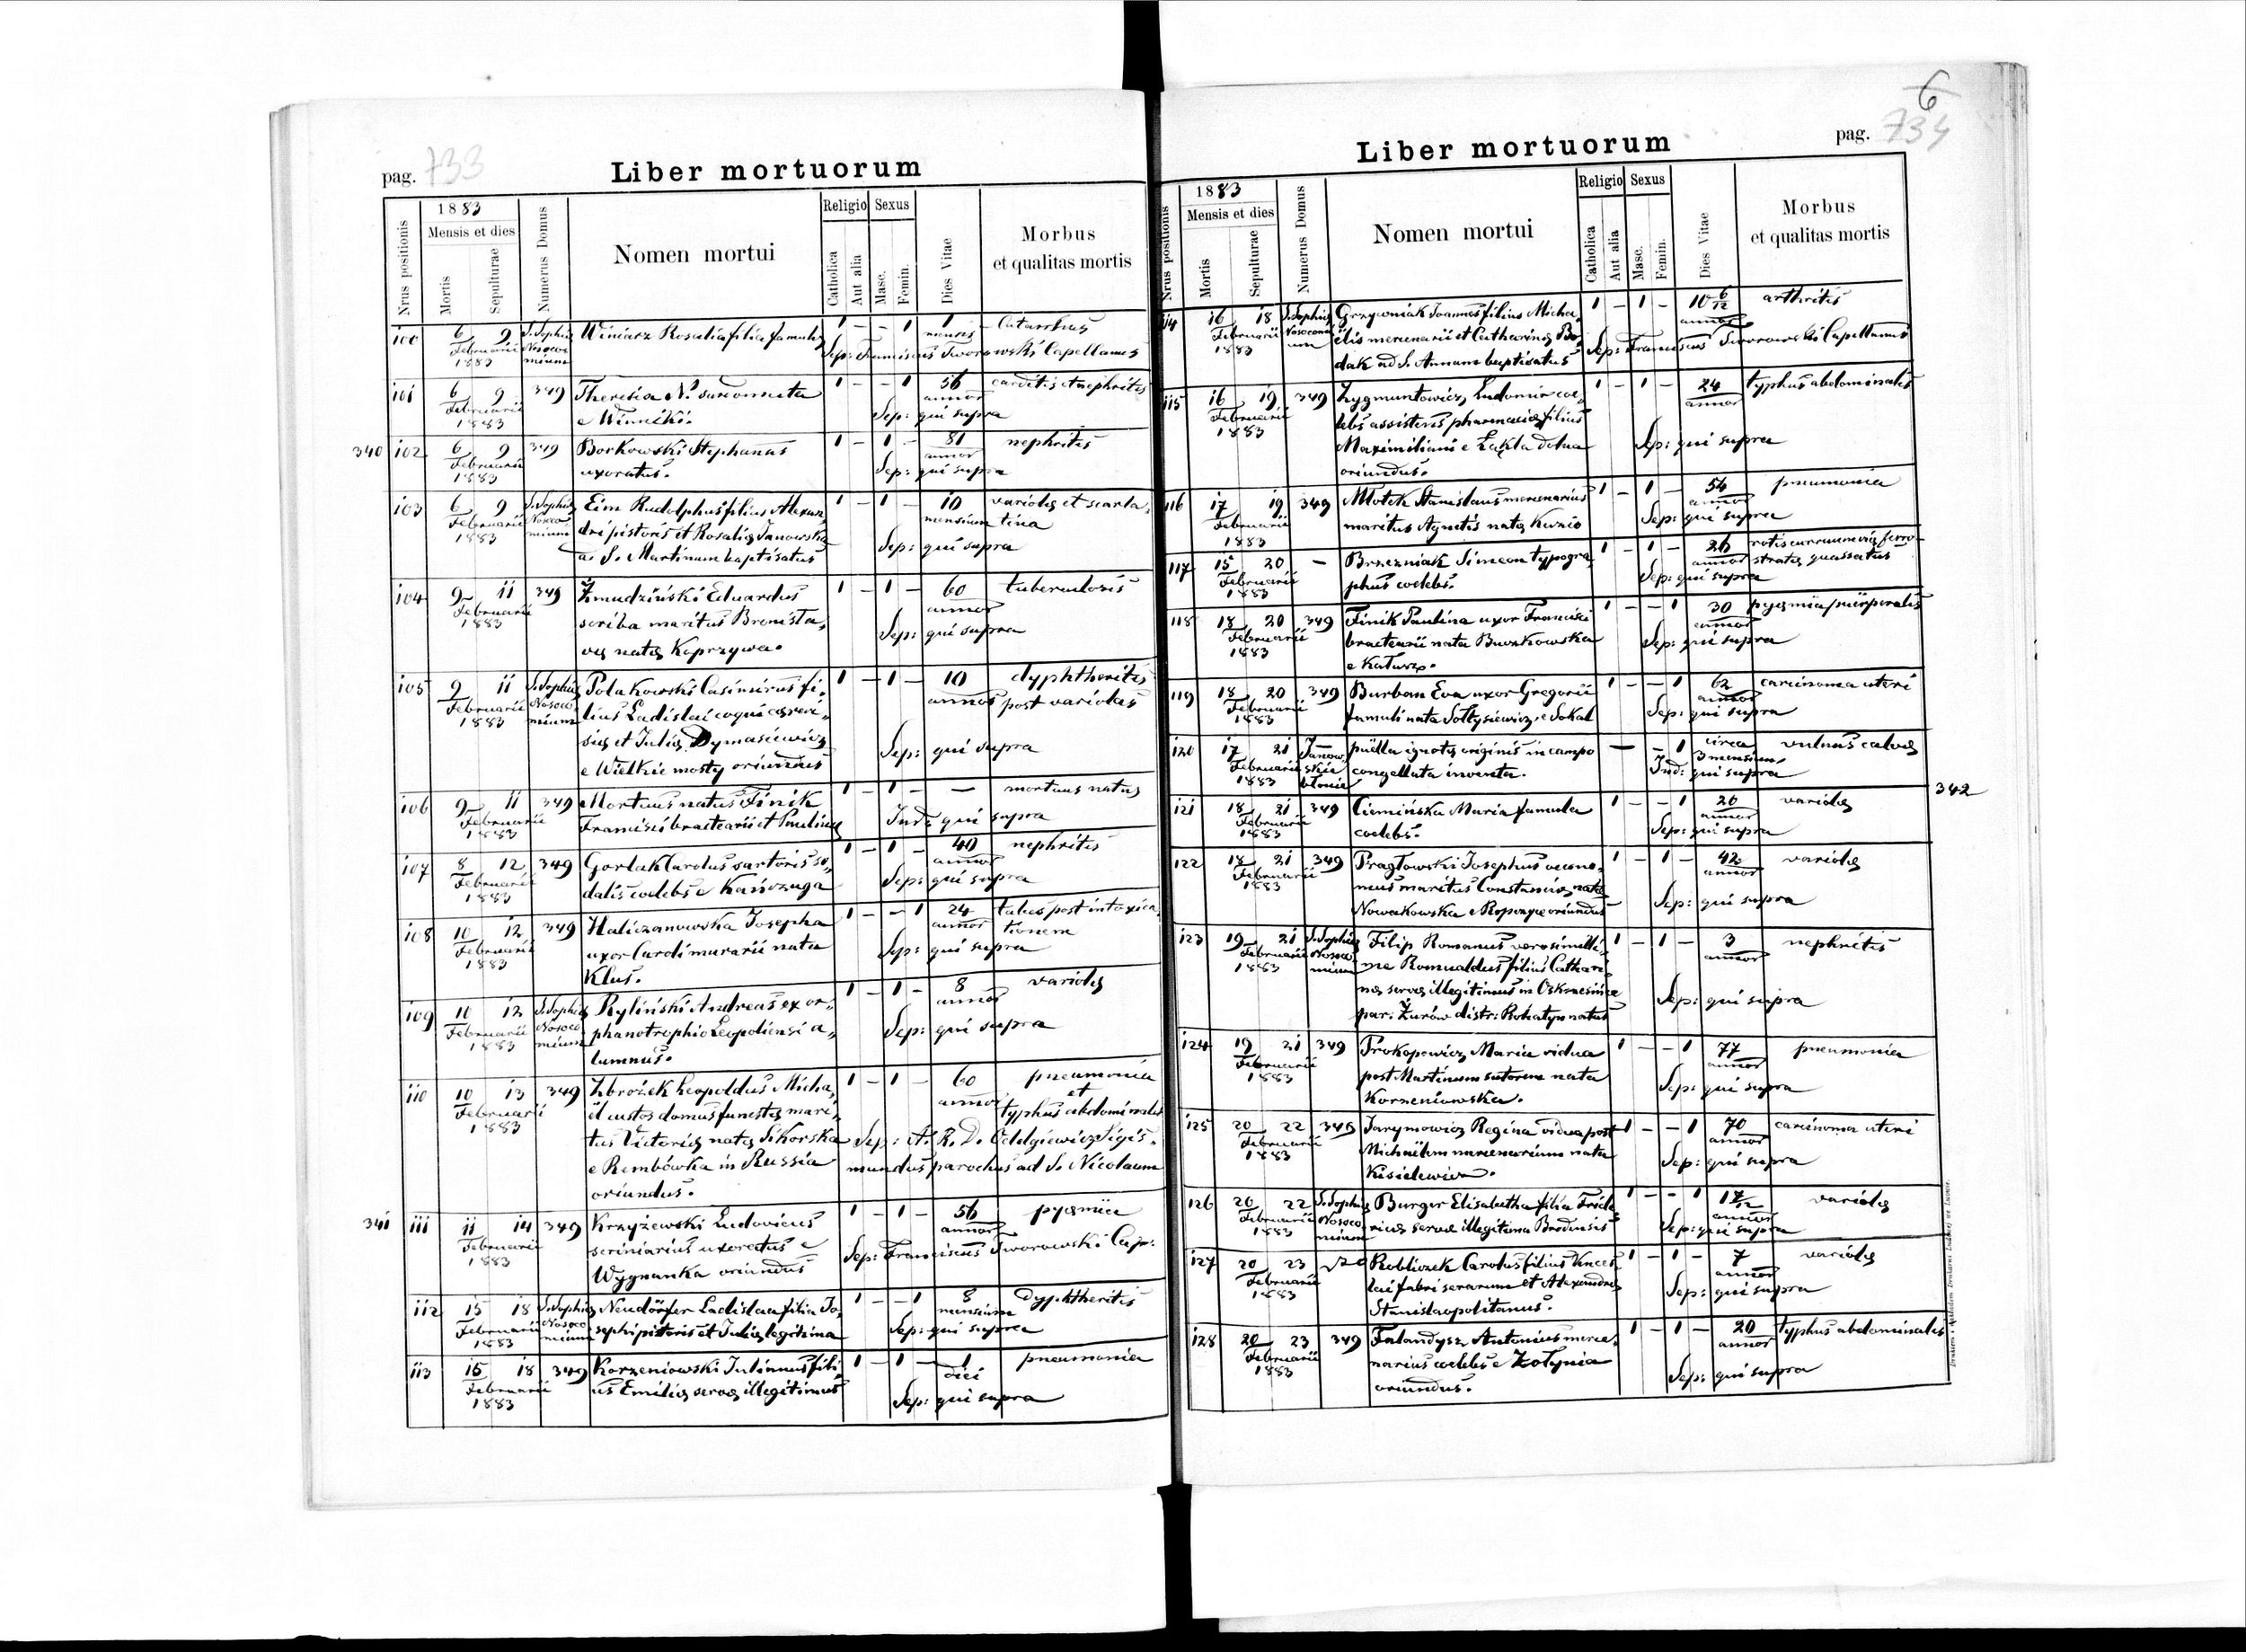 pag. 733
Liber mortuorum
Nrus positionis
1883
Mensis et dies
Mortis
Sepulturae
Numerus Domus
Nomen mortui
Religio
Catholica
Aut alia
Sexus
Masc.
Femin.
Dies Vitae
Morbus
et qualitas mortis
100 6 9 S. Sophia Winiarz Rosalia filia famula 1 – – 1 1 Catarrhus
Februarii Nosoco mensis
1883 mium Sep: Franciscus Tworowski Capellanus
101 6 9 349 Theresia N. 1 – – 1 56 carditis et nephritis
Februarii e Winniki. annor
1883 Sep: qui supra
340 102 6 9 349 Borkowski Stephanus 1 – 1 – 81 nephritis
Februarii uxoratus. annor
1883 Sep: qui supra
103 6 9 S. Sophia Eim Rudolphus filius Alexan 1 – 1 – 10 variolę et scarla
Februarii Nosoco dri pistoris et Rosalię Janowska mensium tina
1883 mium a. S. Martinum baptisatus Sep: qui supra
104 9 11 349 Żmudziński Eduardus 1 – 1 – 60 tuberculosis
Februarii scriba maritus Bronisla annor
1883 vę natę Koprzywa. Sep: qui supra
105 9 11 S. Sophia Polakowski Casimirus fi 1 – 1 – 10 dyphtheritis
Februarii Nosoco lius Ladislai coqui annor post variolas
1883 mium et Julię Dymasiewicz Sep: qui supra
e Wielkie mosty oriundus
106 9 11 349 Mortuus natus Finik 1 – 1 – – mortuus natus
Februarii Francisci bractearii et Paulinę Ind: qui supra
1883
107 8 12 349 Gorlak Carolus sartoris so 1 – 1 – 40 nephritis
Februarii dalis coelebs e Kańczuga annor
1883 Sep: qui supra
108 10 12 349 Haliczanowska Josepha 1 – – 1 24 tabes post intoxica
Februarii uxor Caroli murarii nata annor tionem
1883 Klus. Sep: qui supra
109 10 12 S. Sophia Ryliński Andreas ex or 1 – 1 – 8 variolę
Februarii Nosoco phanotrophio Leopoliensi a annor
1883 mium lumnus. Sep: qui supra
110 10 13 349 Zbrożek Leopoldus Micha 1 – 1 – 60 pneumonia
Februarii el custos domus funestę mari annor et
1883 typhus abdominalis
tus Victorię natę Sikorska Sep: A. R. D. Odelgiewicz Sigis
e Rembówka in Russia mundus parochus ad S. Nicolaum
oriundus.
341 111 11 14 349 Krzyżewski Ludovicus 1 – 1 – 56 pyęmia
Februarii scriniarius uxoratus e annor
1883 Wygnanka oriundus Sep: Franciscus Tworowski Cap:
112 15 18 S. Sophia Neudörfer Ladislaa filia Jo 1 – – 1 8 dyphtheritis
Februarii Nosoco sephi pistoris et Julię legitima mensium
1883 mium Sep: qui supra
113 15 18 349 Korzeniowski Julianus fili 1 – 1 – 1 pneumonia
Februarii us Emilię servę illegitimus diei
1883 Sep: qui supra
6
pag. 734
Liber mortuorum
Nrus positionis
1883
Mensis et dies
Mortis
Sepulturae
Numerus Domus
Nomen mortui
Religio
Catholica
Aut alia
Sexus
Masc.
Femin.
Dies Vitae
Morbus
et qualitas mortis
114 16 18 S. Sophia Grzywniak Joannes filius Micha 1 – 1 – 10 6/12 arthritis
Februarii Nosocomi elis mercenarii et Catharinę Bo annor
1883 um dak ad S. Annam baptisatus Sep: Franciscus Tworowski Capellanus
115 16 19 349 Zygmuntowicz Ludomir coe 1 – 1 – 24 typhus abdominalis
Februarii lebs assistens pharmacię filius annor
1883 Maximiliani e Łąkta dolna Sep: qui supra
oriundus.
116 17 19 349 Młotek Stanislaus mercenarius 1 – 1 – 54 pneumonia
Februarii maritus Agnetis natę Kunio annor
1883 Sep: qui supra
117 15 20 – Brzezniak Simeon typogra 1 – 1 – 26 rotis currus vię ferro
Februarii phus coelebs. annor stratę quassatus
1883 Sep: qui supra
118 18 20 349 Finik Paulina uxor Francisci 1 – – 1 30 pyęmia puerperalis
Februarii bractearii nata Burzkowska annor
1883 e Kałusz. Sep: qui supra
119 18 20 349 Burban Eva uxor Gregorii 1 – – 1 62 carcinoma uteri
Februarii famuli nata Sołtysiewicz e Sokal annor
1883 Sep: qui supra
120 17 21 Janow puella ignotę originis in campo – – 1 circa vulnus calvę
Februarii skie congellata inventa. 3 mensium
1883 błonie Ind: qui supra
342
121 18 21 349 Ciemińska Maria famula 1 – – 1 26 variolę
Februarii coelebs. annor
1883 Sep: qui supra
122 18 21 349 Pragłowski Josephus oecono 1 – 1 – 42 variolę
Februarii mus maritus Constancię natę annor
1883 Nowakowska e Ropczyce oriundus Sep: qui supra
123 19 21 S. Sophia Filip Romanus verosimilli 1 – 1 – 3 nephritis
Februarii Nosoco me Romualdus filius Cathari annor
1883 mium nę servę illegitimus in Oskrzesińce Sep: qui supra
par: Żurów distr: Rohatyn natus
124 19 21 349 Prokopowicz Maria vidua 1 – – 1 77 pneumonia
Februarii post Martinum sutorem nata annor
1883 Korzeniowska. Sep: qui supra
125 20 22 349 Jarymowicz Regina vidua post 1 – – 1 70 carcinoma uteri
Februarii Michaëlem mercenarium nata annor
1883 Kisielewicz. Sep: qui supra
126 20 22 S. Sophia Burger Elisabetha filia Fride 1 – – 1 1 7/12 variolę
Februarii Nosoco ricę servę illegitima Brodensis annor
1883 mium Sep: qui supra
127 20 23 Robliczek Carolus filius Vences 1 – 1 – 7 variolę
Februarii lai fabri serarum et Alexandrę annor
1883 Stanislaopolitanus. Sep: qui supra
128 20 23 349 Falandysz Antonius merce 1 – 1 – 20 typhus abdominalis
Februarii narius coelebs e Żołynia annor
1883 oriundus. Sep: qui supra